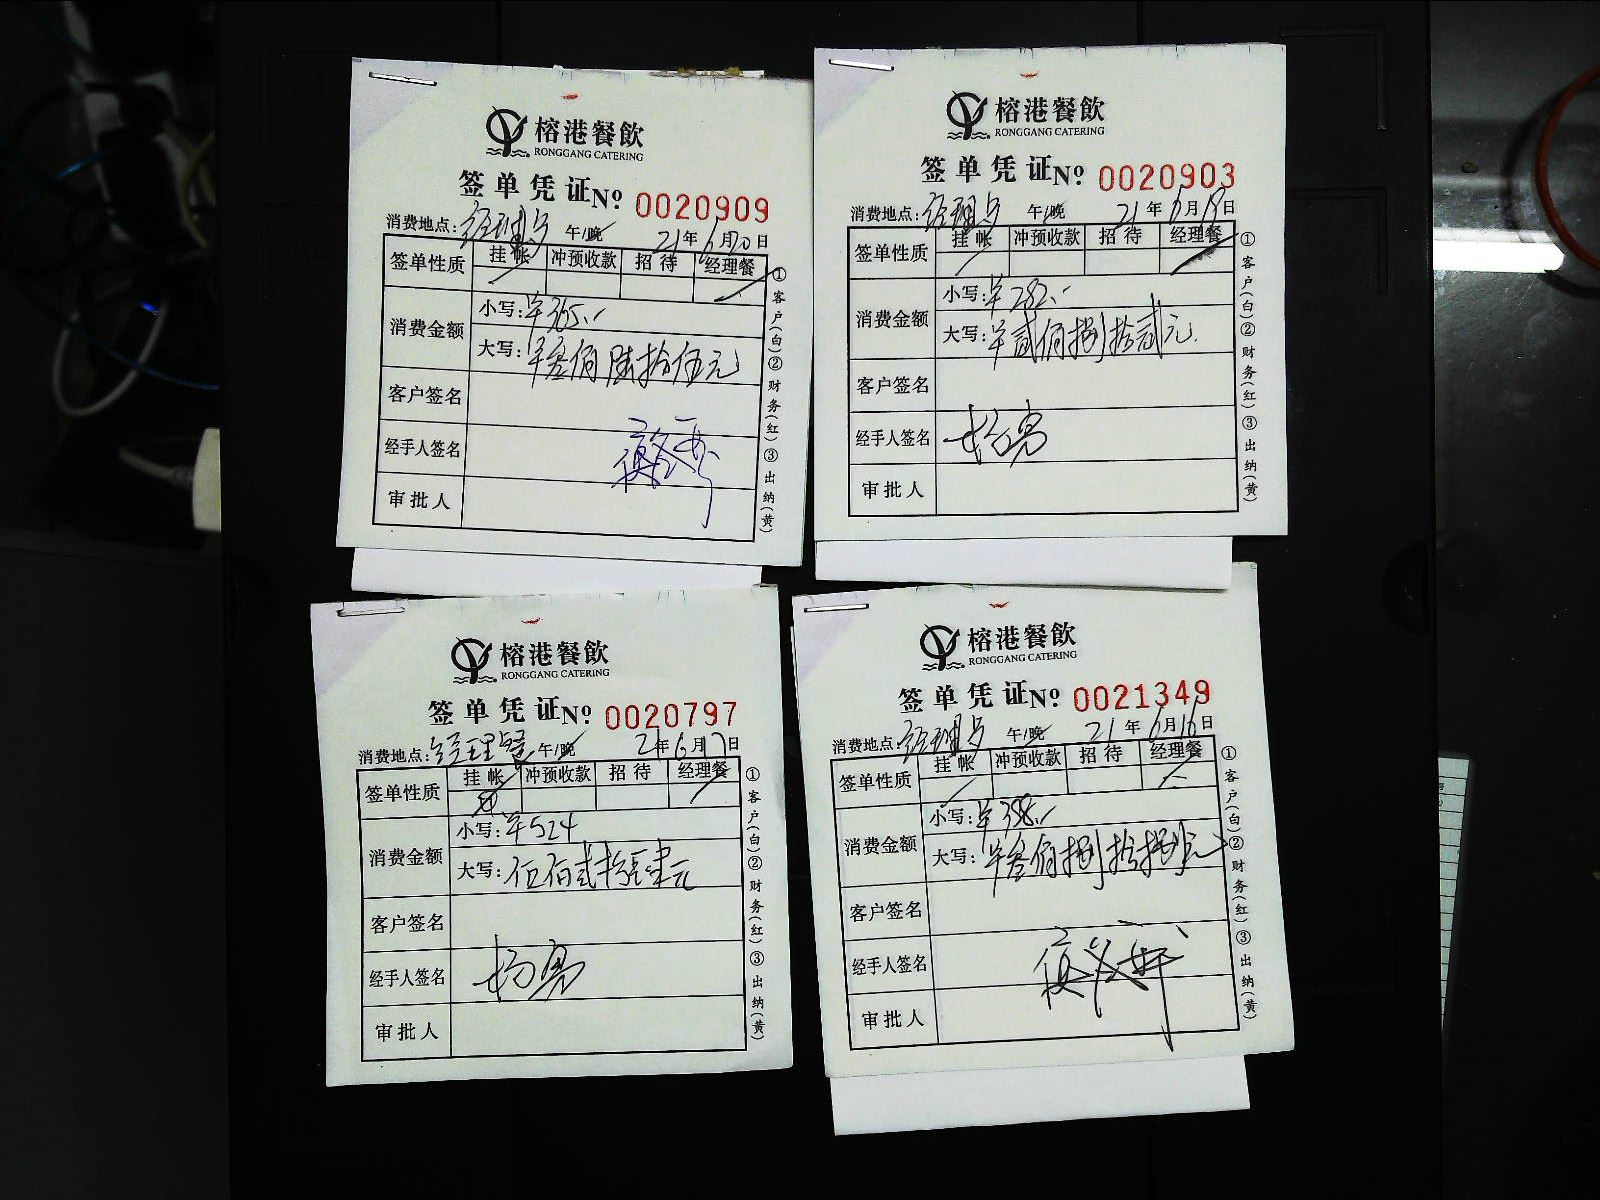 榕港餐飲
RONGGANG CATERING
签单凭证 No 0020909
消费地点: 经理 午/晚 21年6月20日
签单性质 挂帐 冲预收款 招待 经理餐
消费金额 小写: ¥365.-
大写: ¥叁佰陆拾伍元
客户签名
经手人签名
审批人
①客户(白)②财务(红)③出纳(黄)
榕港餐飲
RONGGANG CATERING
签单凭证 No 0020903
消费地点: 经理 午/晚 21年6月19日
签单性质 挂帐 冲预收款 招待 经理餐
消费金额 小写: ¥282.-
大写: ¥贰佰捌拾贰元
客户签名
经手人签名 杨亮
审批人
①客户(白)②财务(红)③出纳(黄)
榕港餐飲
RONGGANG CATERING
签单凭证 No 0020797
消费地点: 经理餐 午/晚 21年6月17日
签单性质 挂帐 冲预收款 招待 经理餐
消费金额 小写: ¥524
大写: 伍佰贰拾肆元
客户签名
经手人签名 杨亮
审批人
①客户(白)②财务(红)③出纳(黄)
榕港餐飲
RONGGANG CATERING
签单凭证 No 0021349
消费地点: 经理 午/晚 21年6月16日
签单性质 挂帐 冲预收款 招待 经理餐
消费金额 小写: ¥388.-
大写: ¥叁佰捌拾捌元
客户签名
经手人签名
审批人
①客户(白)②财务(红)③出纳(黄)